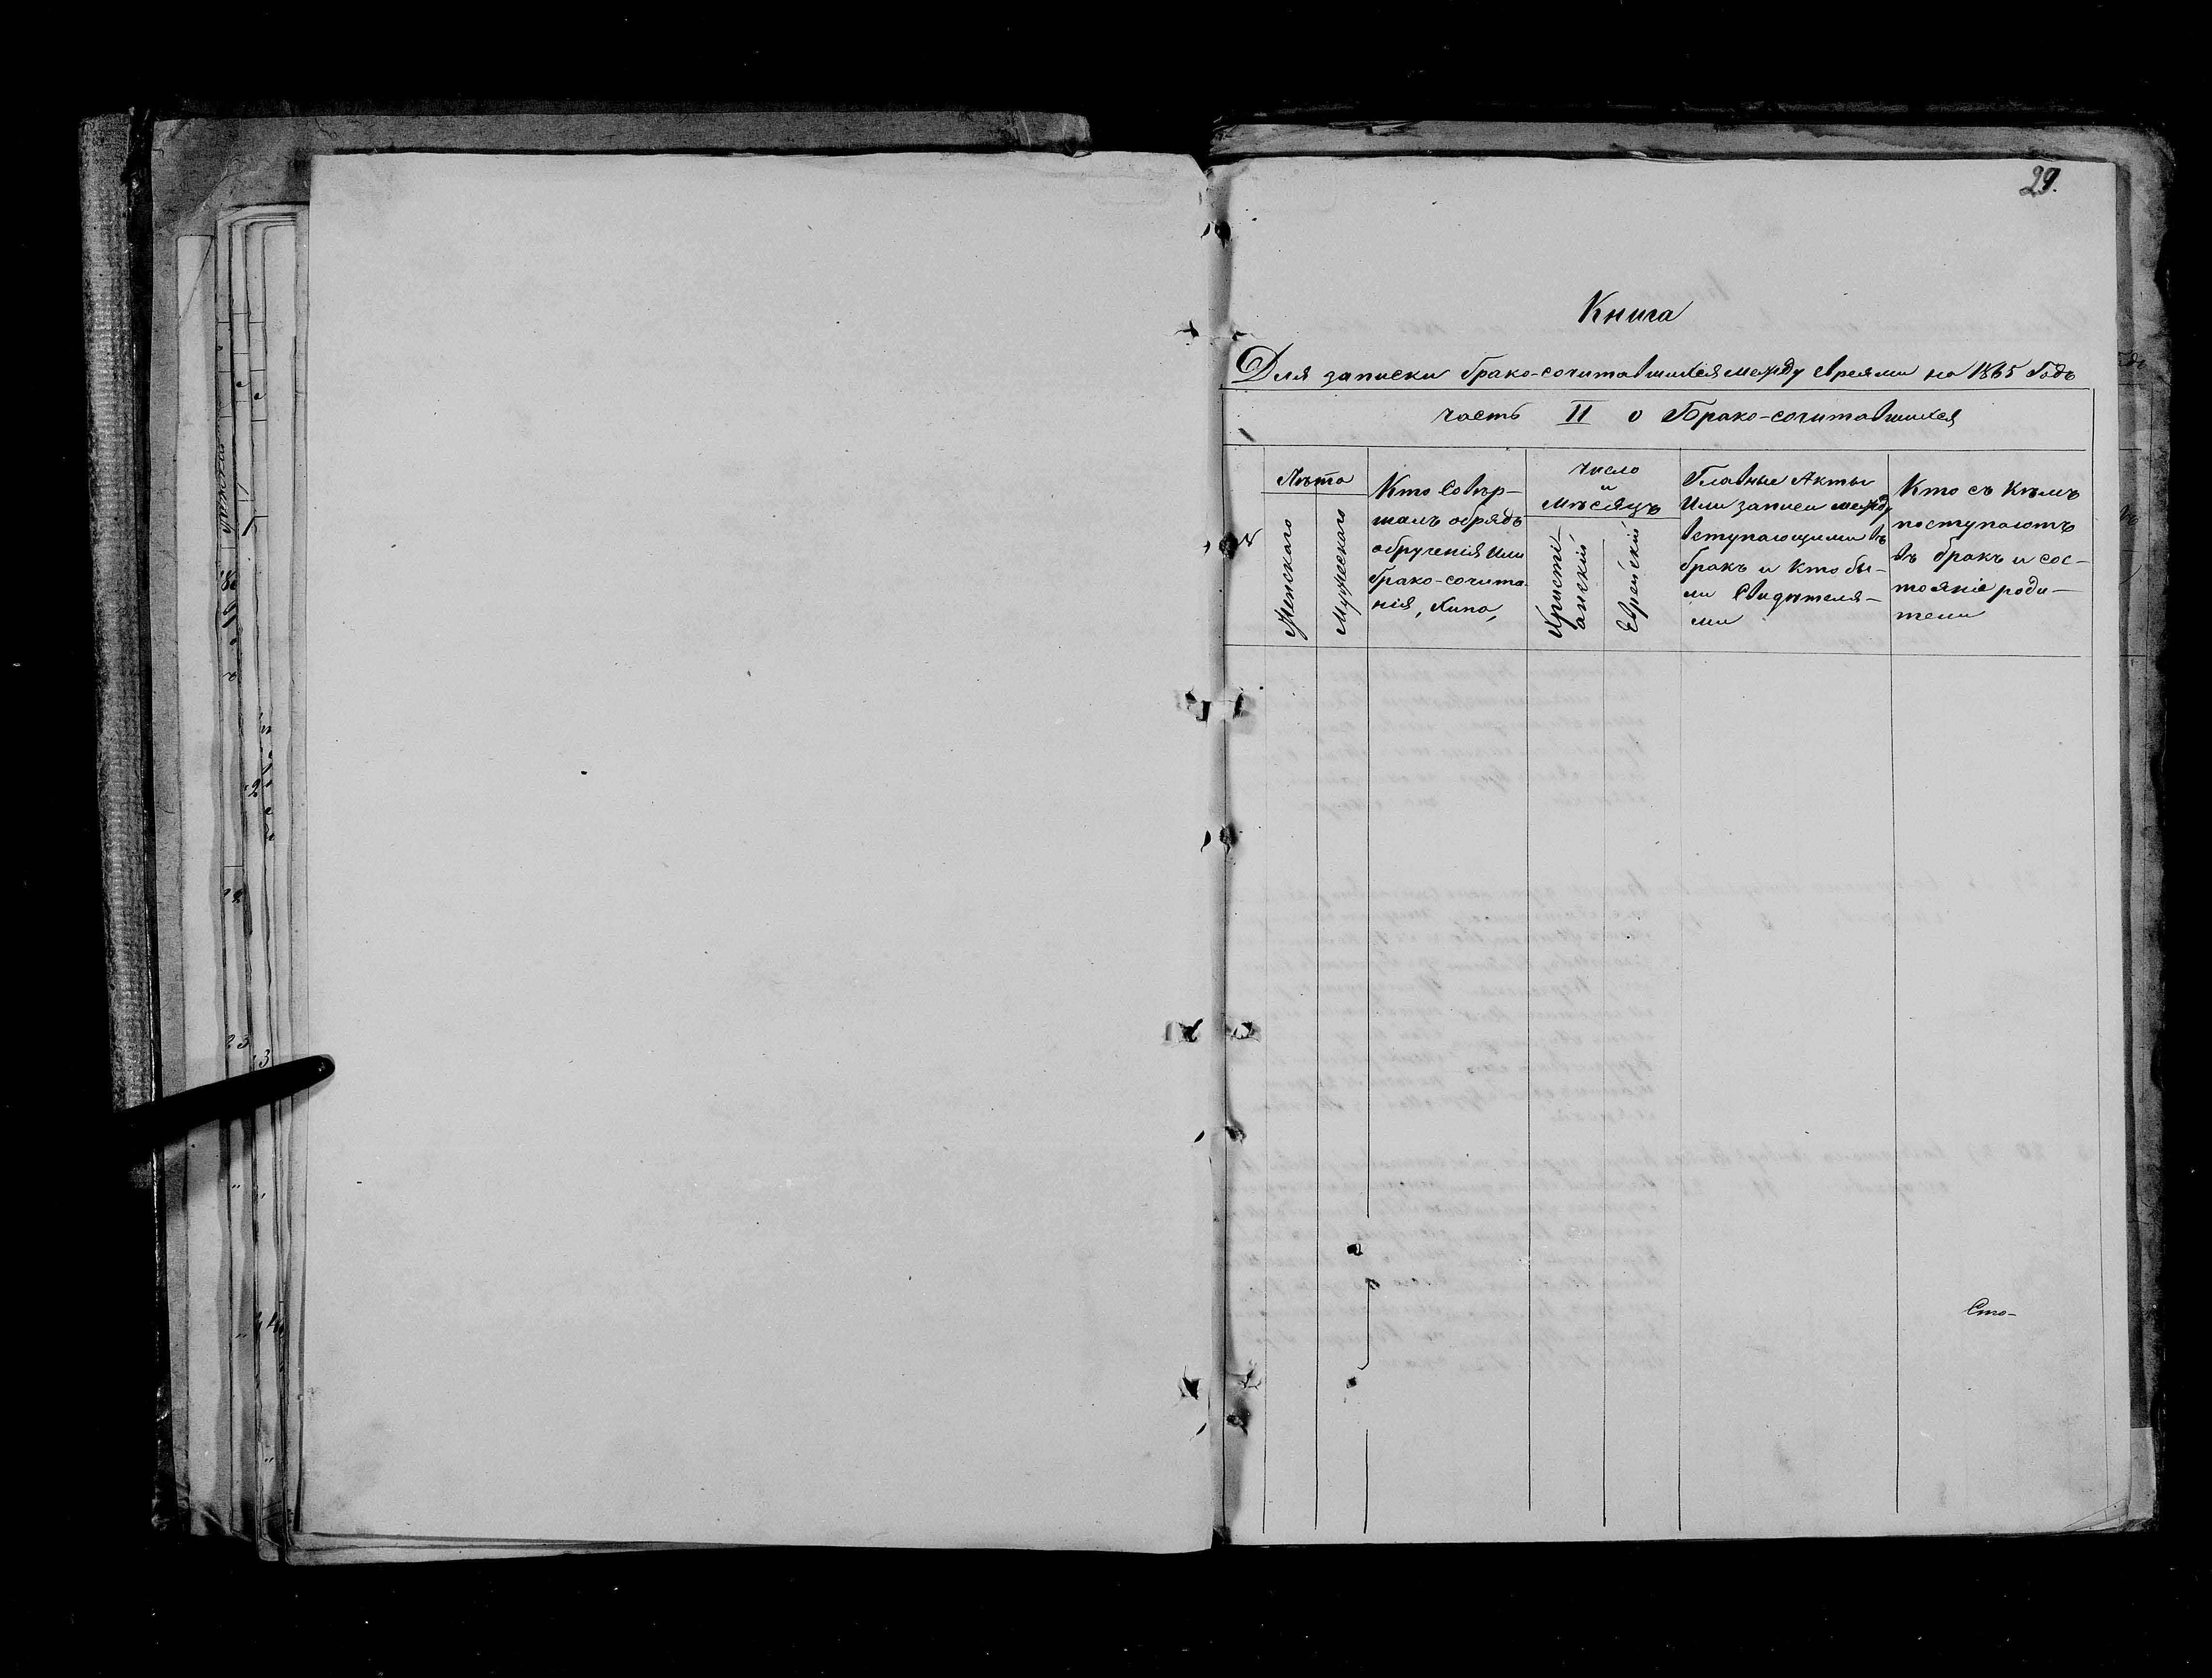 29.
Книга
Для записки брако-сочитавшихся между евреями на 1865 Годъ
часть II о Брако-сочитавшихся
№
Лѣта
Женскаго
Мужескаго
Кто Совѣр-
шалъ обрядъ
обрученія или
брако-сочита
нія, Хипа,
Число
и
Мѣсяцъ
Христі-
анскій
Еврейскій
Главные Акты
Или записи между
вступающими въ
бракъ и кто бы-
ли Свидѣтеля-
ми
Кто съ Кѣмъ
поступаютъ
въ бракъ и сос-
тояніе роди-
тели
Сто-